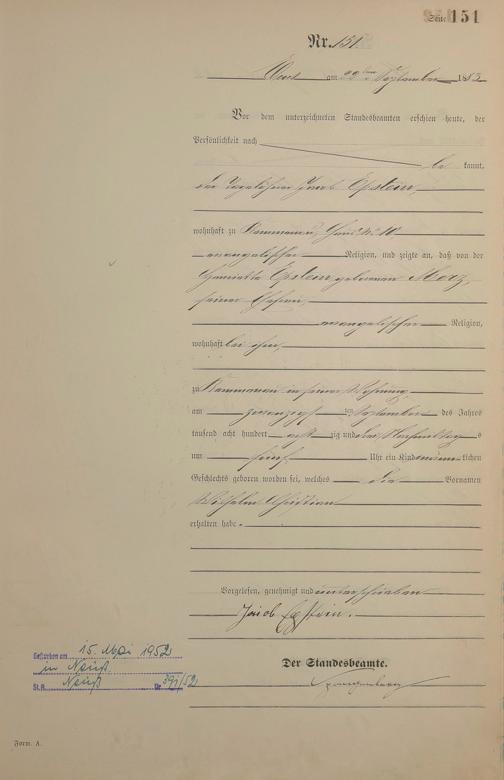 Seite 151
Nr. 151
am September 188
Vor dem unterzeichneten Standesbeamten erschien heute, der
Persönlichkeit nach
be kannt,
der Jacob Epstein,
wohnhaft zu
evangelischer Religion, und zeigte an, daß von der
Henriette Epstein geborenen Merz,
seiner Ehefrau,
evangelischer Religion,
wohnhaft bei ihm,
zu in seiner Wohnung
am zwanzigsten September des Jahres
tausend acht hundert acht zig und
um fünf Uhr ein Kind männlichen
Geschlechts geboren worden sei, welches die Vornamen
Wilhelm Christian
erhalten habe.
Vorgelesen, genehmigt und unterschrieben
Jacob Epstein.
Der Standesbeamte.
Gestorben am 15. Mai 1952
in Neuß
St.A. Neuß Nr 391/52
Form. A.